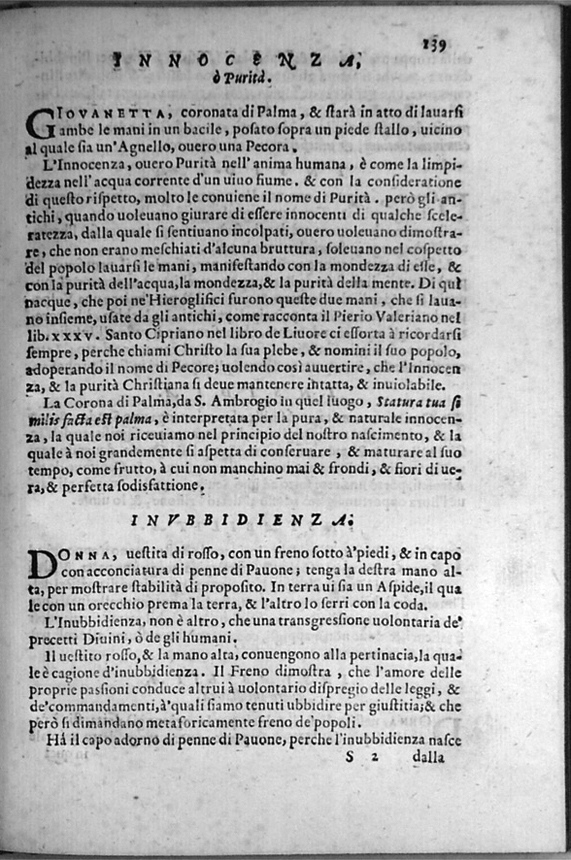 139
INNOCENZA,
ò Purità.
GIOVANETTA, coronata di Palma, & ſtarà in atto di lauarſi
ambe le mani in un bacile, poſato ſopra un piede ſtallo, uicino
al quale ſia un'Agnello, ouero una Pecora.
L'Innocenza, ouero Purità nell'anima humana, è come la limpi-
dezza nell'acqua corrente d'un uiuo fiume. & con la conſideratione
di queſto riſpetto, molto le conuiene il nome di Purità. però gli an-
tichi, quando uoleuano giurare di eſſere innocenti di qualche ſcele-
ratezza, dalla quale ſi ſentiuano incolpati, ouero uoleuano dimoſtra-
re, che non erano meſchiati d'alcuna bruttura, ſoleuano nel coſpetto
del popolo lauarſi le mani, manifeſtando con la mondezza di eſſe, &
con la purità dell'acqua, la mondezza, & la purità della mente. Di qui
nacque, che poi ne'Hieroglifici furono queſte due mani, che ſi laua-
no inſieme, uſate da gli antichi, come racconta il Pierio Valeriano nel
lib. xxxv. Santo Cipriano nel libro de Liuore ci eſſorta à ricordarſi
ſempre, perche chiami Chriſto la ſua plebe, & nomini il ſuo popolo,
adoperando il nome di Pecore; uolendo così auuertire, che l'Innocen
za, & la purità Chriſtiana ſi deue mantenere intatta, & inuiolabile.
La Corona di Palma, da S. Ambrogio in quel luogo, Statura tua ſi
milis facta eſt palmæ, è interpretata per la pura, & naturale innocen-
za, la quale noi riceuiamo nel principio del noſtro naſcimento, & la
quale à noi grandemente ſi aſpetta di conſeruare, & maturare al ſuo
tempo, come frutto, à cui non manchino mai & frondi, & fiori di ue-
ra, & perfetta ſodisfattione.
INVBBIDIENZA.
DONNA, ueſtita di roſſo, con un freno ſotto à'piedi, & in capo
con acconciatura di penne di Pauone; tenga la deſtra mano al-
ta, per moſtrare ſtabilità di propoſito. In terra ui ſia un Aſpide, il qua
le con un orecchio prema la terra, & l'altro ſo ſerri con la coda.
L'Inubbidienza, non è altro, che una transgreſſione uolontaria de'
precetti Diuini, ò de gli humani.
Il ueſtito roſſo, & la mano alta, conuengono alla pertinacia, la qua-
le è cagione d'inubbidienza. Il Freno dimoſtra, che l'amore delle
proprie paſſioni conduce altrui à uolontario diſpregio delle leggi, &
de'commandamenti, à'quali ſiamo tenuti ubbidire per giuſtitia; & che
però ſi dimandano metaforicamente freno de'popoli.
Hà il capo adorno di penne di Pauone, perche l'inubbidienza naſce
S 2 dalla